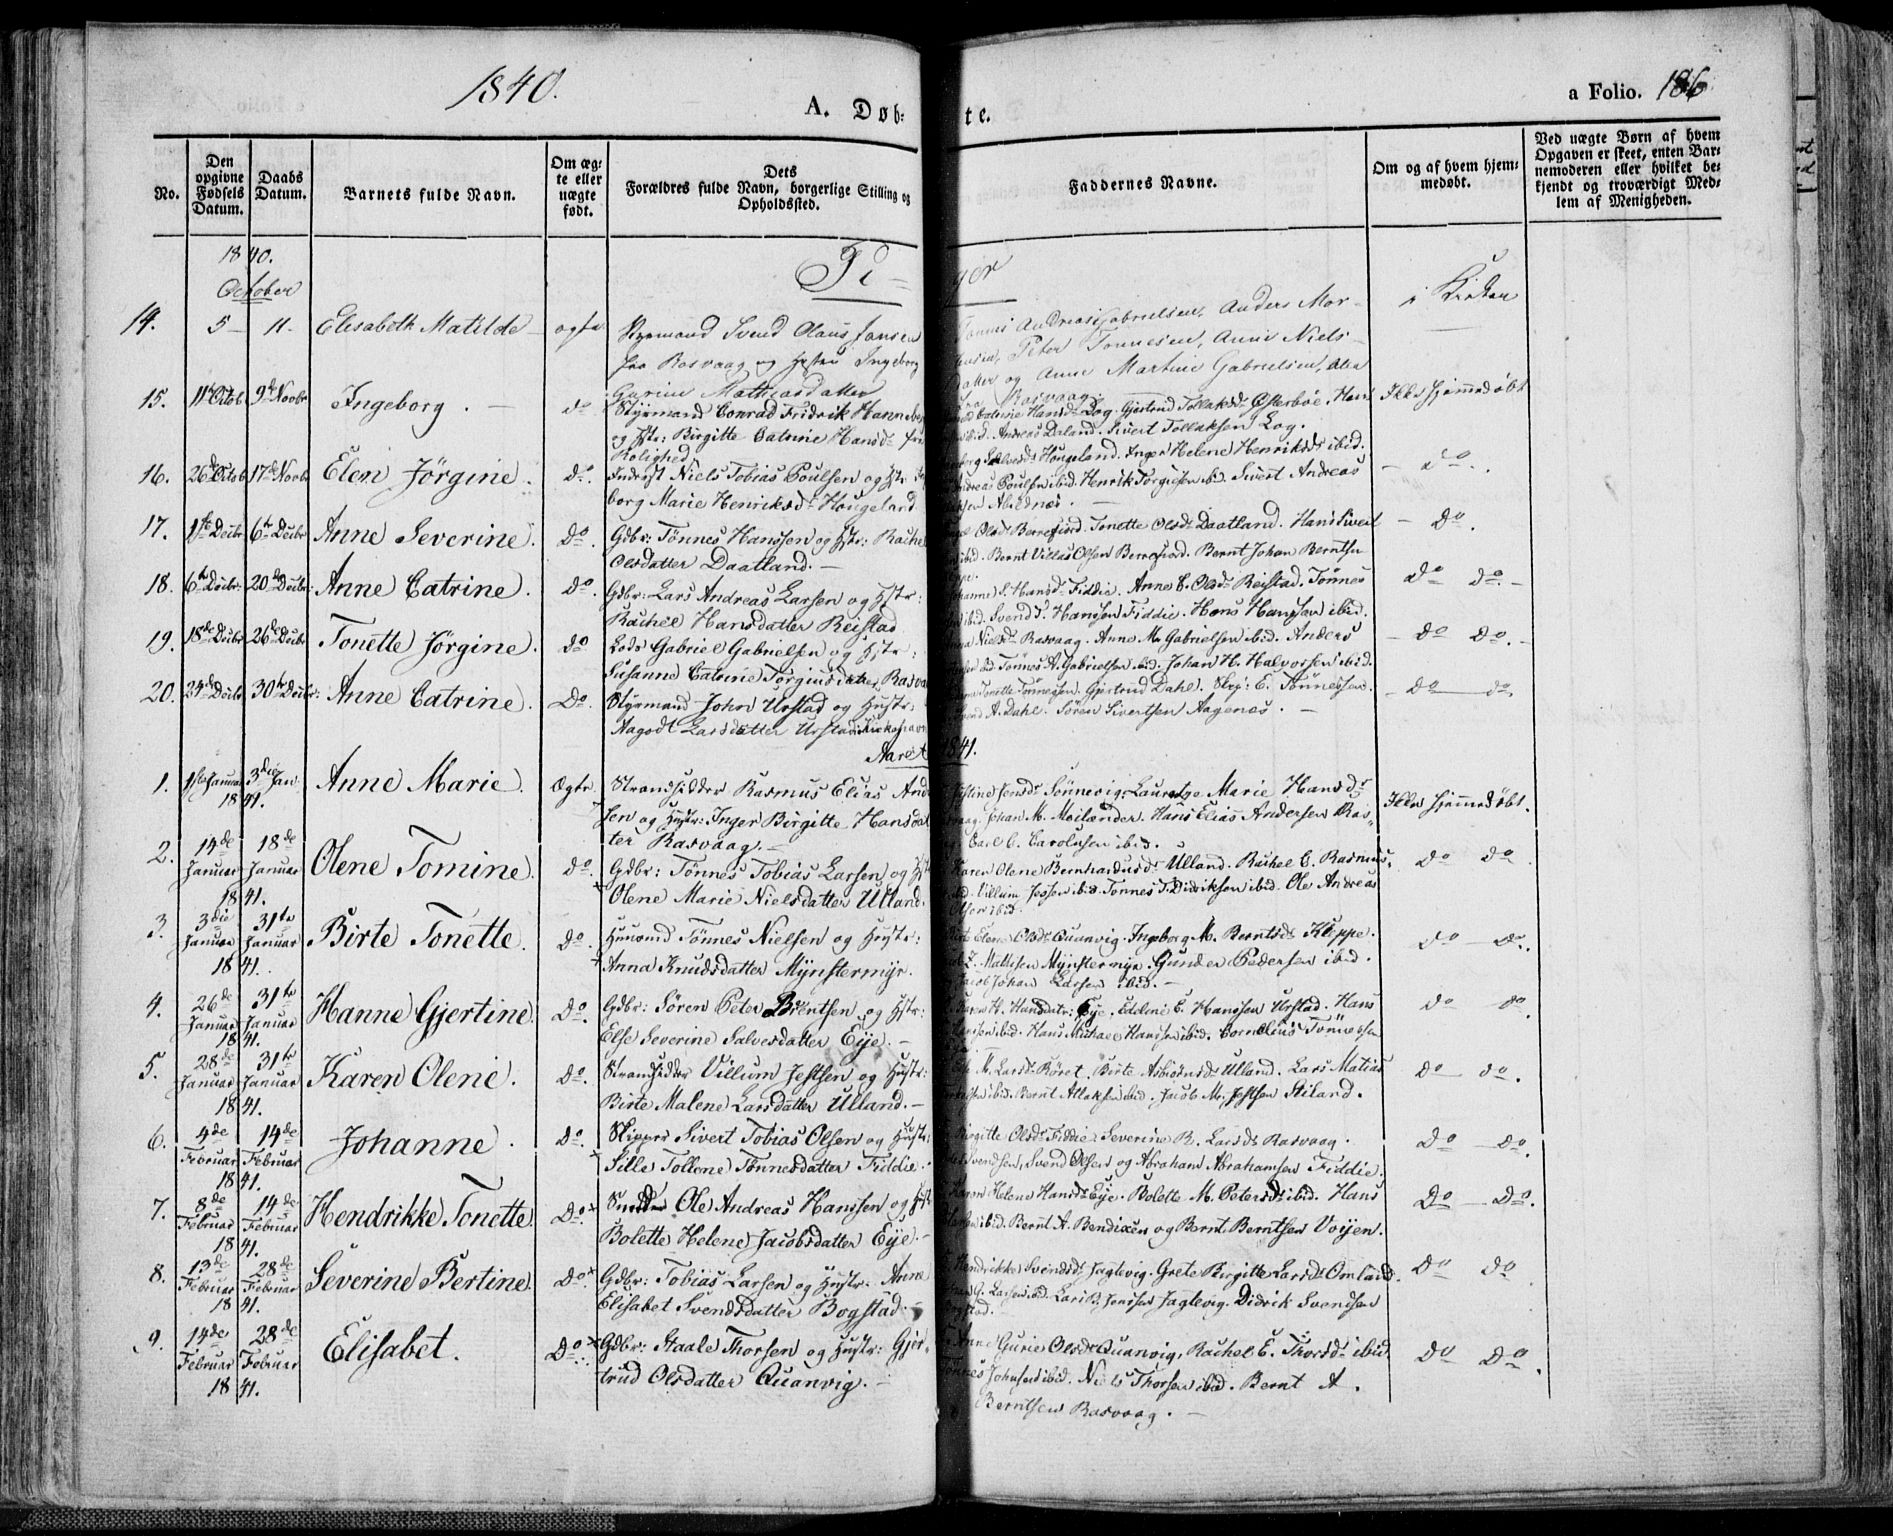 1840.
A. Døb-
te.
a Folio. 186
No.
Den opgivne Fødsels Datum.
Daabs Datum.
Barnets fulde Navn.
Om ægte eller uægte født.
Dets
Forældres fulde Navn, borgerlige Stilling og Opholdssted.
Faddernes Navne.
Om og af hvem hjemmedøbt.
Ved uægte Børn af hvem Opgaven er skeet, enten Barnemoderen eller hvilket bekjendt og troværdigt Medlem af Menigheden.
1840.
October
Pi-
ger
14. 5 - 11 - Elisabeth Matilde - ægte Styrmand Svend Olaus Jansen
fra Rasvaag og Hustru Ingeborg
Gurine Mathiasdatter
Tønnes Andreas Gabrielsen, Anders Mor-
Peter Tønnesen, Anne Niels-
datter og Anne Martine Gabrielsen, alle
fra Rasvaag
i Kirken
15. 11te Octob 9de Novbr Ingeborg. - do Styrmand Conrad Fridrik Hannsen
og Hstr: Birgitte Catrine Hansdr fra
Rolighed
Catrine Hansdr Log. Gjertrud Tollaksdr Østerbøe. Hans
ibid. Andreas Daland. Sivert Tollaksen Log.
Ikke hjemmedøbt
16. 26de Octob 17de Novbr Elen Jörgine. do. Inderst Niels Tobias Poulsen og Hstr: Inge-
borg Marie Henriksdr Hougeland
Salvesdr Hougeland. Inger Helene Henriksdr ibid.
Andreas Poulsen ibid. Henrik Torgiesen ibid. Sivert Andreas
Abelnæs.
- do.
17. 1ste Decbr 6te Decbr Anne Severine. Do. Gdbr: Tønnes Hanssen og Hstr: Rachel
Olsdatter Daatland. -
Olsdr Berrefiord. Tonette Olsdr Daatland. Hans Sivert
ibid. Bernt Villas Olsen Berrefiord. Bernt Johan Berntsen
- Do.
18. 6te Decbr: 20de Decbr: Anne Catrine. do. Gdbr: Lars Andreas Larsen og Hstr:
Rachel Hansdatter Reistad
Johanne S. Hansdr Fiddie. Anne C. Olsdr Reistad. Tønnes
ibid. Svend S. Hanssen Fiddie. Hans Hanssen ibid.
do do. -
19. 18de Decbr 26de Decbr Tonette Jörgine. do Lods Gabriel Gabrielsen og Hstr:
Susanne Catrine Torgiusdatter Rasva
Nielsdr Rasvaag. Anne M. Gabrielsen ibid. Anders
ibid. Tønnes A. Gabrielsen ibid. Johan H. Halvorsen ibid.
- Do Do. -
20. 24de Decbr 30te Decbr: Anne Catrine. Do. Styrmand John Urstad og Hustr:
Aagodt Larsdatter Urstad i Kirkehavn
Tonette Tønnesen. Gjertrud Dahl. Skpr: E. Tønnessen.
A. Dahl. Søren Sivertsen Aagenes. -
- Do - do.
Aaret
1841.
1. 1ste Januar 3die Jan
1841. Anne Marie. Ægte. Strandsidder Rasmus Elias And
sen og Hustr: Inger Birgitte Hansdat
ter Rasvaag. -
Jensdr Sønnevig. Lauretze Marie Hansdr
Johan M. Moilænder. Hans Elias Andersen Ras-
Carl C. Carolusen ibid.
Ikke hjemmedøbt.
2. 14de Januar 18de Januar
1841. Olene Tomine. do. Gdbr: Tønnes Tobias Larsen og Hst
Olene Marie Nielsdatter Ulland.
Karen Olene Bernhardusdr Ulland. Rachel C. Rasmus-
ibid. Villum Jessen ibid. Tønnes T. Didriksen ibid. Ole Andreas
Olsen ibid.
Do Do
3. 3die Januar 31te Januar
1841. Birte Tonette. Do. Huusmd Tønnes Nielsen og Hustr:
Anna Knudsdatter Mynstermyr.
Elene Olsdr Quanvig. Ingeborg M. Berntsdr Kleppe.
Mathisen Mynstermyr. Gunder Pedersen ibid.
Jacob Johan Larsen ibid. -
Do - Do.
4. 26de Januar 31te Januar
1841. Hanne Gjertine. Do. Gdbr: Søren Peter Berntsen og Hstr:
Else Severine Salvesdatter Eije. -
Karen H. Hansdtr: Eye. Eddine C. Hanssen Urstad. Hans
Hanssen ibid. Hans Michael Hanssen ibid. Cornelius Tønnessen
Do do.
5. 28de Januar 31te Januar
1841. Karen Olene. do. Strandsidder Villum Jessen og Hustr:
Birte Malene Larsdatter Ulland. -
M. Larsdr Røret. Birte Asbiørnsdr Ulland. Lars Matias
ibid. Bernt Atlaksen ibid. Jacob M. Jessen Stiland.
Do - do.
6. 4de Februar 14de Februar
1841. Johanne. Do. Skipper Sivert Tobias Olsen og Hustr:
Sille Tollene Tønnesdatter Fiddie.
Birgitte Olsdr Fiddie. Severine B. Larsdr Rasvaag.
Svendsen, Svend Olsen og Abraham Abrahamsen Fiddie.
Do - Do.
7. 8de Februar 14de Februar
1841. Hendrikke Tonette. Do. Ole Andreas Hanssen og Hust
Bolette Helene Jacobsdatter Eye. -
Karen Helene Hansdr Eye. Bolette M. Petersdr ibid. Hans
ibid. Bernt A. Bendixen og Bernt Berntsen Voijen.
Do - Do.
8. 13de Februar 28de Februar
1841. Severine Bertine. Do. Gdbr: Tobias Larsen og Hustr: Anne
Elisabet Svendsdatter Bogstad
Hendrikke Svendsdr Jaglevig. Grete Birgitte Larsdr Omland.
G. Larsen ibid. Lars B. Jenssen Jaglevig. Didrik Svendsen
Bogstad.
Do Do
9. 14de Februar 28de Februar
1841. Elisabet. Do. Gdbr: Staale Thorsen og Hustr: Gjer-
trud Olsdatter Quanvig. -
Anne Gurie Olsdr Quanvig. Rachel E. Thorsdr ibid.
Tønnes Johnsen ibid. Niels Thorsen ibid. Bernt A.
Berntsen Rasvaag. -
Do Do.